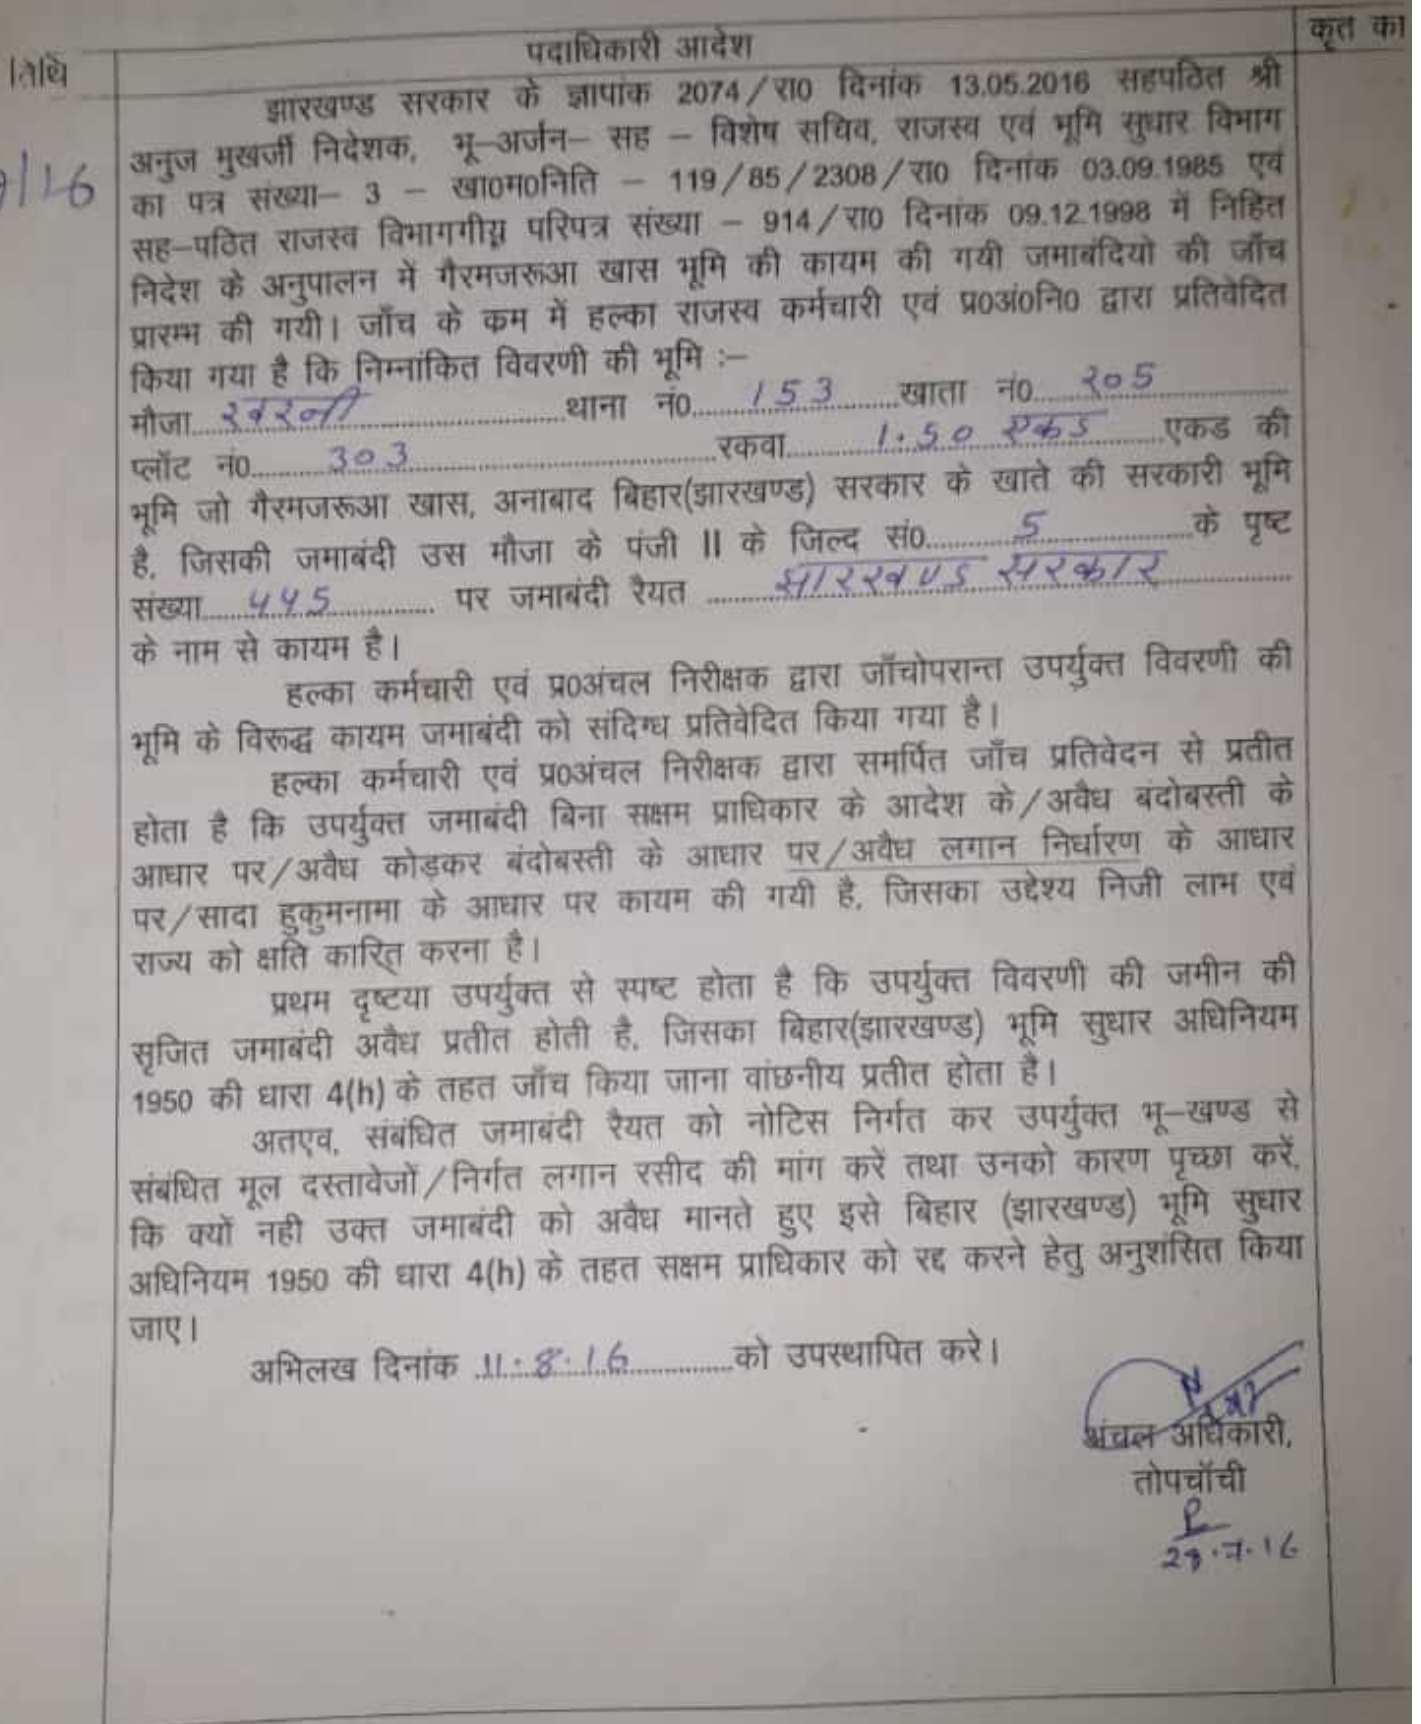 तिथि
पदाधिकारी आदेश
कृत का
/16
झारखण्ड सरकार के ज्ञापांक 2074/रा0 दिनांक 13.05.2016 सहपठित श्री
अनुज मुखर्जी निदेशक, भू–अर्जन– सह – विशेष सचिव, राजस्व एवं भूमि सुधार विभाग
का पत्र संख्या– 3 – खा0म0निति – 119/85/2308/रा0 दिनांक 03.09.1985 एवं
सह–पठित राजस्व विभागगीय परिपत्र संख्या – 914/रा0 दिनांक 09.12.1998 में निहित
निदेश के अनुपालन में गैरमजरूआ खास भूमि की कायम की गयी जमाबंदियो की जाँच
प्रारम्भ की गयी। जाँच के कम में हल्का राजस्व कर्मचारी एवं प्र0अं0नि0 द्वारा प्रतिवेदित
किया गया है कि निम्नांकित विवरणी की भूमि :–
मौजा खरनी थाना नं0 153 खाता नं0 205
प्लॉट नं0 303 रकवा 1.50 एकड एकड की
भूमि जो गैरमजरूआ खास, अनाबाद बिहार(झारखण्ड) सरकार के खाते की सरकारी भूमि
है, जिसकी जमाबंदी उस मौजा के पंजी II के जिल्द सं0 5 के पृष्ट
संख्या 445 पर जमाबंदी रैयत झारखण्ड सरकार
के नाम से कायम है।
हल्का कर्मचारी एवं प्र0अंचल निरीक्षक द्वारा जाँचोपरान्त उपर्युक्त विवरणी की
भूमि के विरूद्ध कायम जमाबंदी को संदिग्ध प्रतिवेदित किया गया है।
हल्का कर्मचारी एवं प्र0अंचल निरीक्षक द्वारा समर्पित जाँच प्रतिवेदन से प्रतीत
होता है कि उपर्युक्त जमाबंदी बिना सक्षम प्राधिकार के आदेश के/अवैध बंदोबस्ती के
आधार पर/अवैध कोड़कर बंदोबस्ती के आधार पर/अवैध लगान निर्धारण के आधार
पर/सादा हुकुमनामा के आधार पर कायम की गयी है, जिसका उद्देश्य निजी लाभ एवं
राज्य को क्षति कारित् करना है।
प्रथम दृष्टया उपर्युक्त से स्पष्ट होता है कि उपर्युक्त विवरणी की जमीन की
सृजित जमाबंदी अवैध प्रतीत होती है, जिसका बिहार(झारखण्ड) भूमि सुधार अधिनियम
1950 की धारा 4(h) के तहत जाँच किया जाना वांछनीय प्रतीत होता है।
अतएव, संबंधित जमाबंदी रैयत को नोटिस निर्गत कर उपर्युक्त भू–खण्ड से
संबंधित मूल दस्तावेजों/निर्गत लगान रसीद की मांग करें तथा उनको कारण पृच्छा करें,
कि क्यों नही उक्त जमाबंदी को अवैध मानते हुए इसे बिहार (झारखण्ड) भूमि सुधार
अधिनियम 1950 की धारा 4(h) के तहत सक्षम प्राधिकार को रद्द करने हेतु अनुशंसित किया
जाए।
अभिलख दिनांक 11.8.16 को उपस्थापित करे।
अंचल अधिकारी,
तोपचाँची
28.7.16